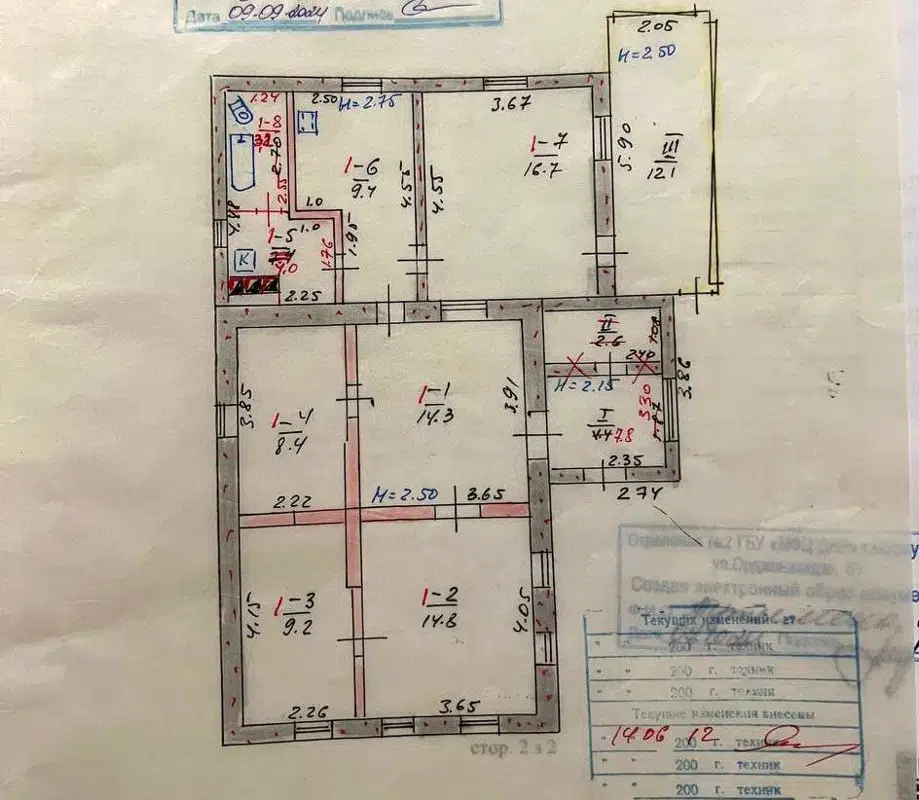 Дата 09.09.2024 Подпись
2.05
H=2.50
1.24
2.50
H=2.75
3.67
1-8
3.2
2.70
1-7
16.7
5.90
III
12.1
1-6
9.4
4.55
4.55
2.55
1.0
4.48
1.0
1-5
4.0
1.95
1.76
К
2.25
II
2.6
2.40
H=2.15
3.86
3.85
1-1
14.3
3.91
3.30
1.87
I
4.4 7.8
1-4
8.4
2.35
2.22
H=2.50
3.65
2.74
Отделение №2 ГБУ «МФЦ
Создан электронный образ
1-3
9.2
4.15
1-2
14.8
4.05
Текущих изменений нет
" " 200 г. техник
" " 200 г. техник
" " 200 г. техник
Текущие изменения внесены
" 14.06 12 200 г. техник
" " 200 г. техник
" " 200 г. техник
2.26
3.65
стор. 2 з 2